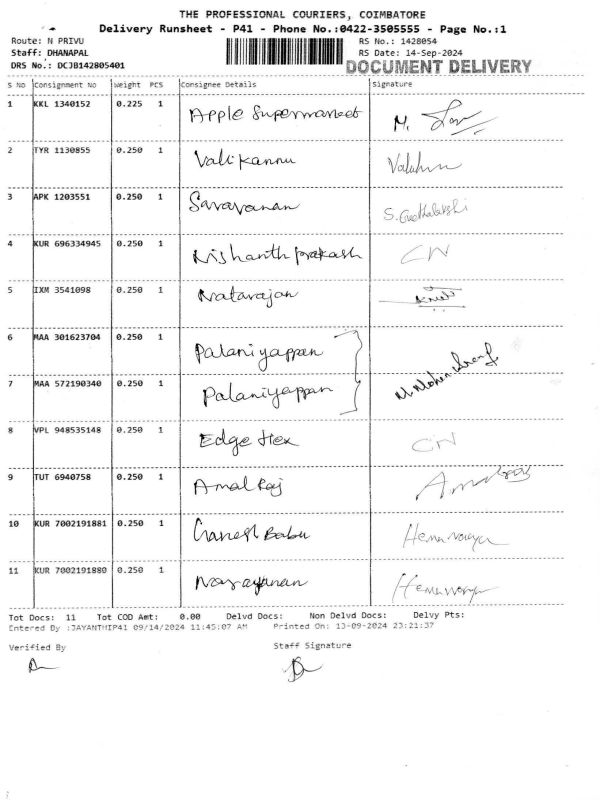 THE PROFESSIONAL COURIERS, COIMBATORE
Delivery Runsheet - P41 - Phone No.:0422-3505555 - Page No.:1
Route: N PRIVU RS No.: 1428054
Staff: DHANAPAL RS Date: 14-Sep-2024
DRS No.: DCJB142805401 DOCUMENT DELIVERY
S No Consignment No Weight PCS Consignee Details Signature
1 KKL 1340152 0.225 1 Apple Supermarket M.
2 TYR 1130855 0.250 1 Vallikannu
3 APK 1203551 0.250 1 Saravanan
4 KUR 696334945 0.250 1 Nishanth prakash CN
5 IXM 3541098 0.250 1 Natarajan
6 MAA 301623704 0.250 1 Palaniyappan
7 MAA 572190340 0.250 1 Palaniyappan
8 VPL 948535148 0.250 1 Edge Hex CN
9 TUT 6940758 0.250 1 Amal Raj
10 KUR 7002191881 0.250 1 Ganesh Babu
11 KUR 7002191880 0.250 1 Narayanan
Tot Docs: 11 Tot COD Amt: 0.00 Delvd Docs: Non Delvd Docs: Delvy Pts:
Entered By :JAYANTHIP41 09/14/2024 11:45:07 AM Printed On: 13-09-2024 23:21:37
Verified By Staff Signature